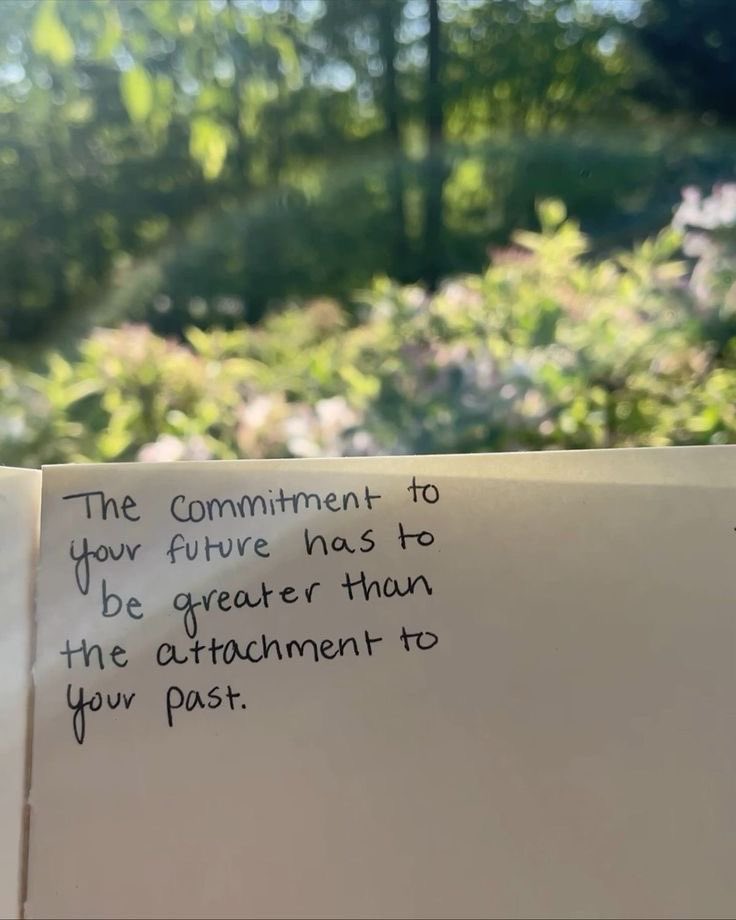 The commitment to
your future has to
be greater than
the attachment to
your past.